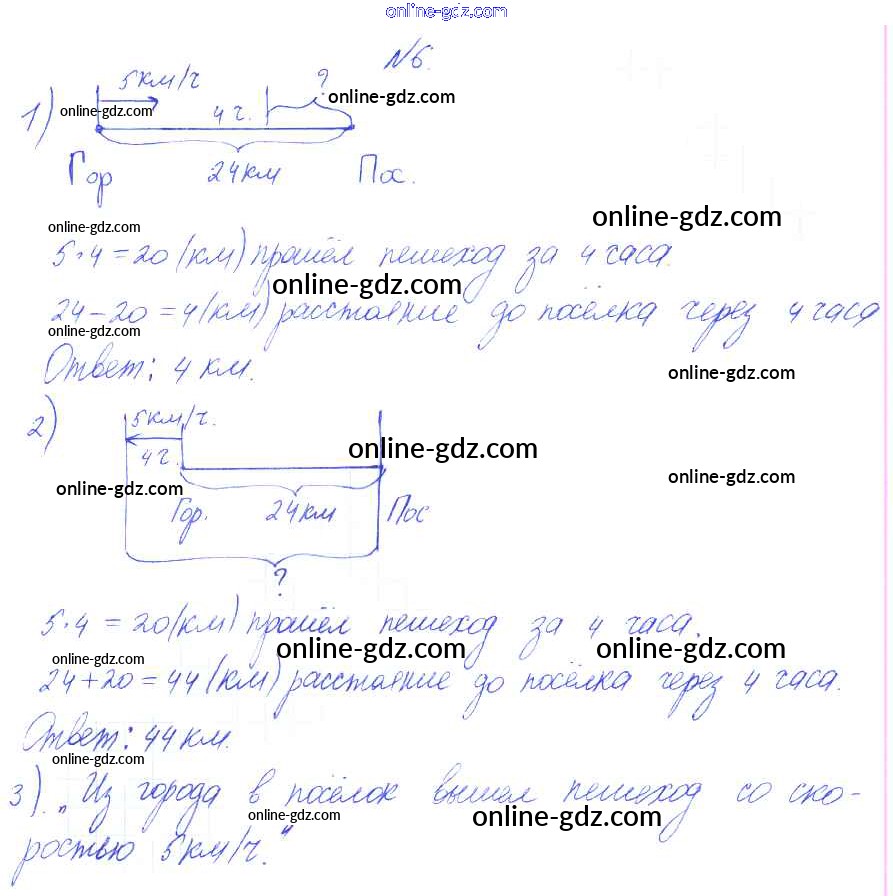 online-gdz.com
№6.
5км/ч ?
1) online-gdz.com 4 ч. online-gdz.com
Гор 24 км Пос.
online-gdz.com online-gdz.com
5·4=20 (км) прошёл пешеход за 4 часа.
online-gdz.com
24-20=4(км) расстояние до посёлка через 4 часа
online-gdz.com
Ответ: 4 км.
online-gdz.com
2) 5км/ч.
4 ч. online-gdz.com
online-gdz.com online-gdz.com
Гор. 24 км Пос
?
5·4=20(км) прошёл пешеход за 4 часа.
online-gdz.com online-gdz.com online-gdz.com
24+20=44(км) расстояние до посёлка через 4 часа.
Ответ: 44 км.
online-gdz.com
3). „Из города в посёлок вышел пешеход со ско-
online-gdz.com online-gdz.com
ростью 5км/ч."